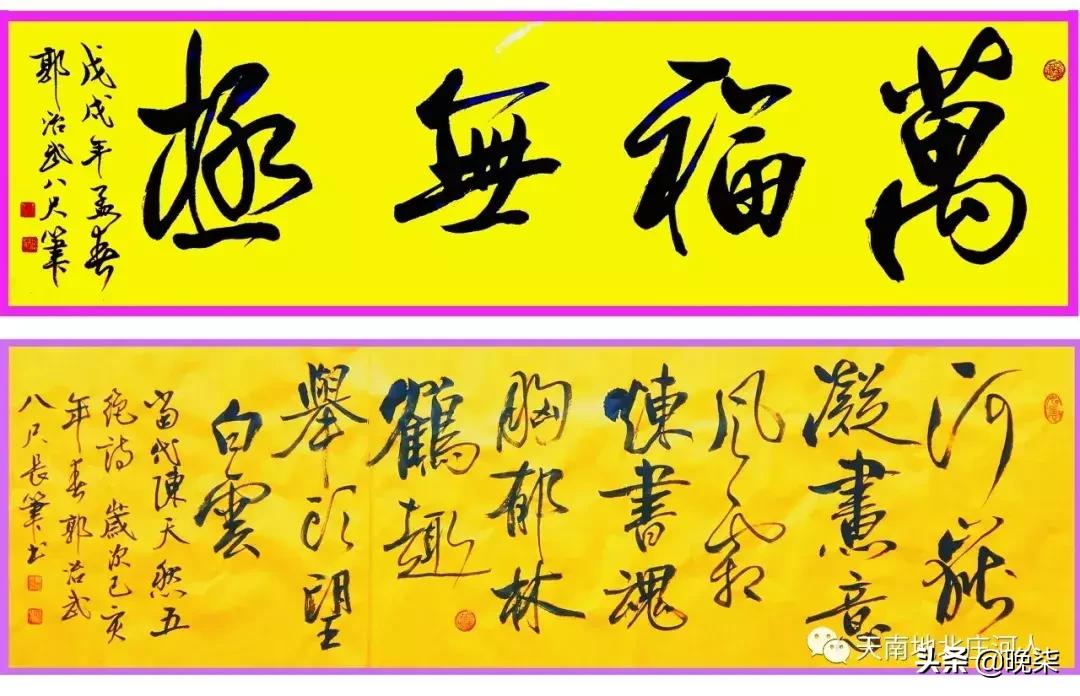 萬福無極
戊戌年孟春
郭治武八尺筆
河嶽
凝畫意
風霜
煉書魂
胸郁林
鶴趣
舉頭望
白雲
當代陳天然五
絕詩 歲次己亥
年春郭治武
八尺長筆书
天南地北庄河人
头条 @晚柒